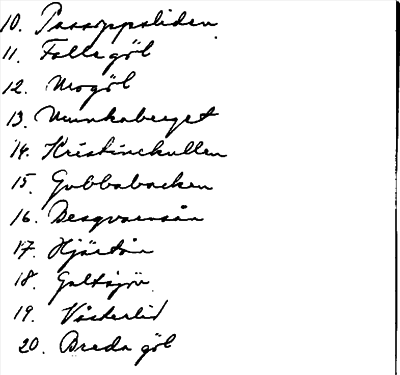 10. Passoppsliden
11. Falle göl
12. Mogöl
13. Munkaberget
14. Kristinekullen
15. Gubbabacken
16.
17. Hjärtån
18. Galtsjön
19. Västerlid
20. Breda göl